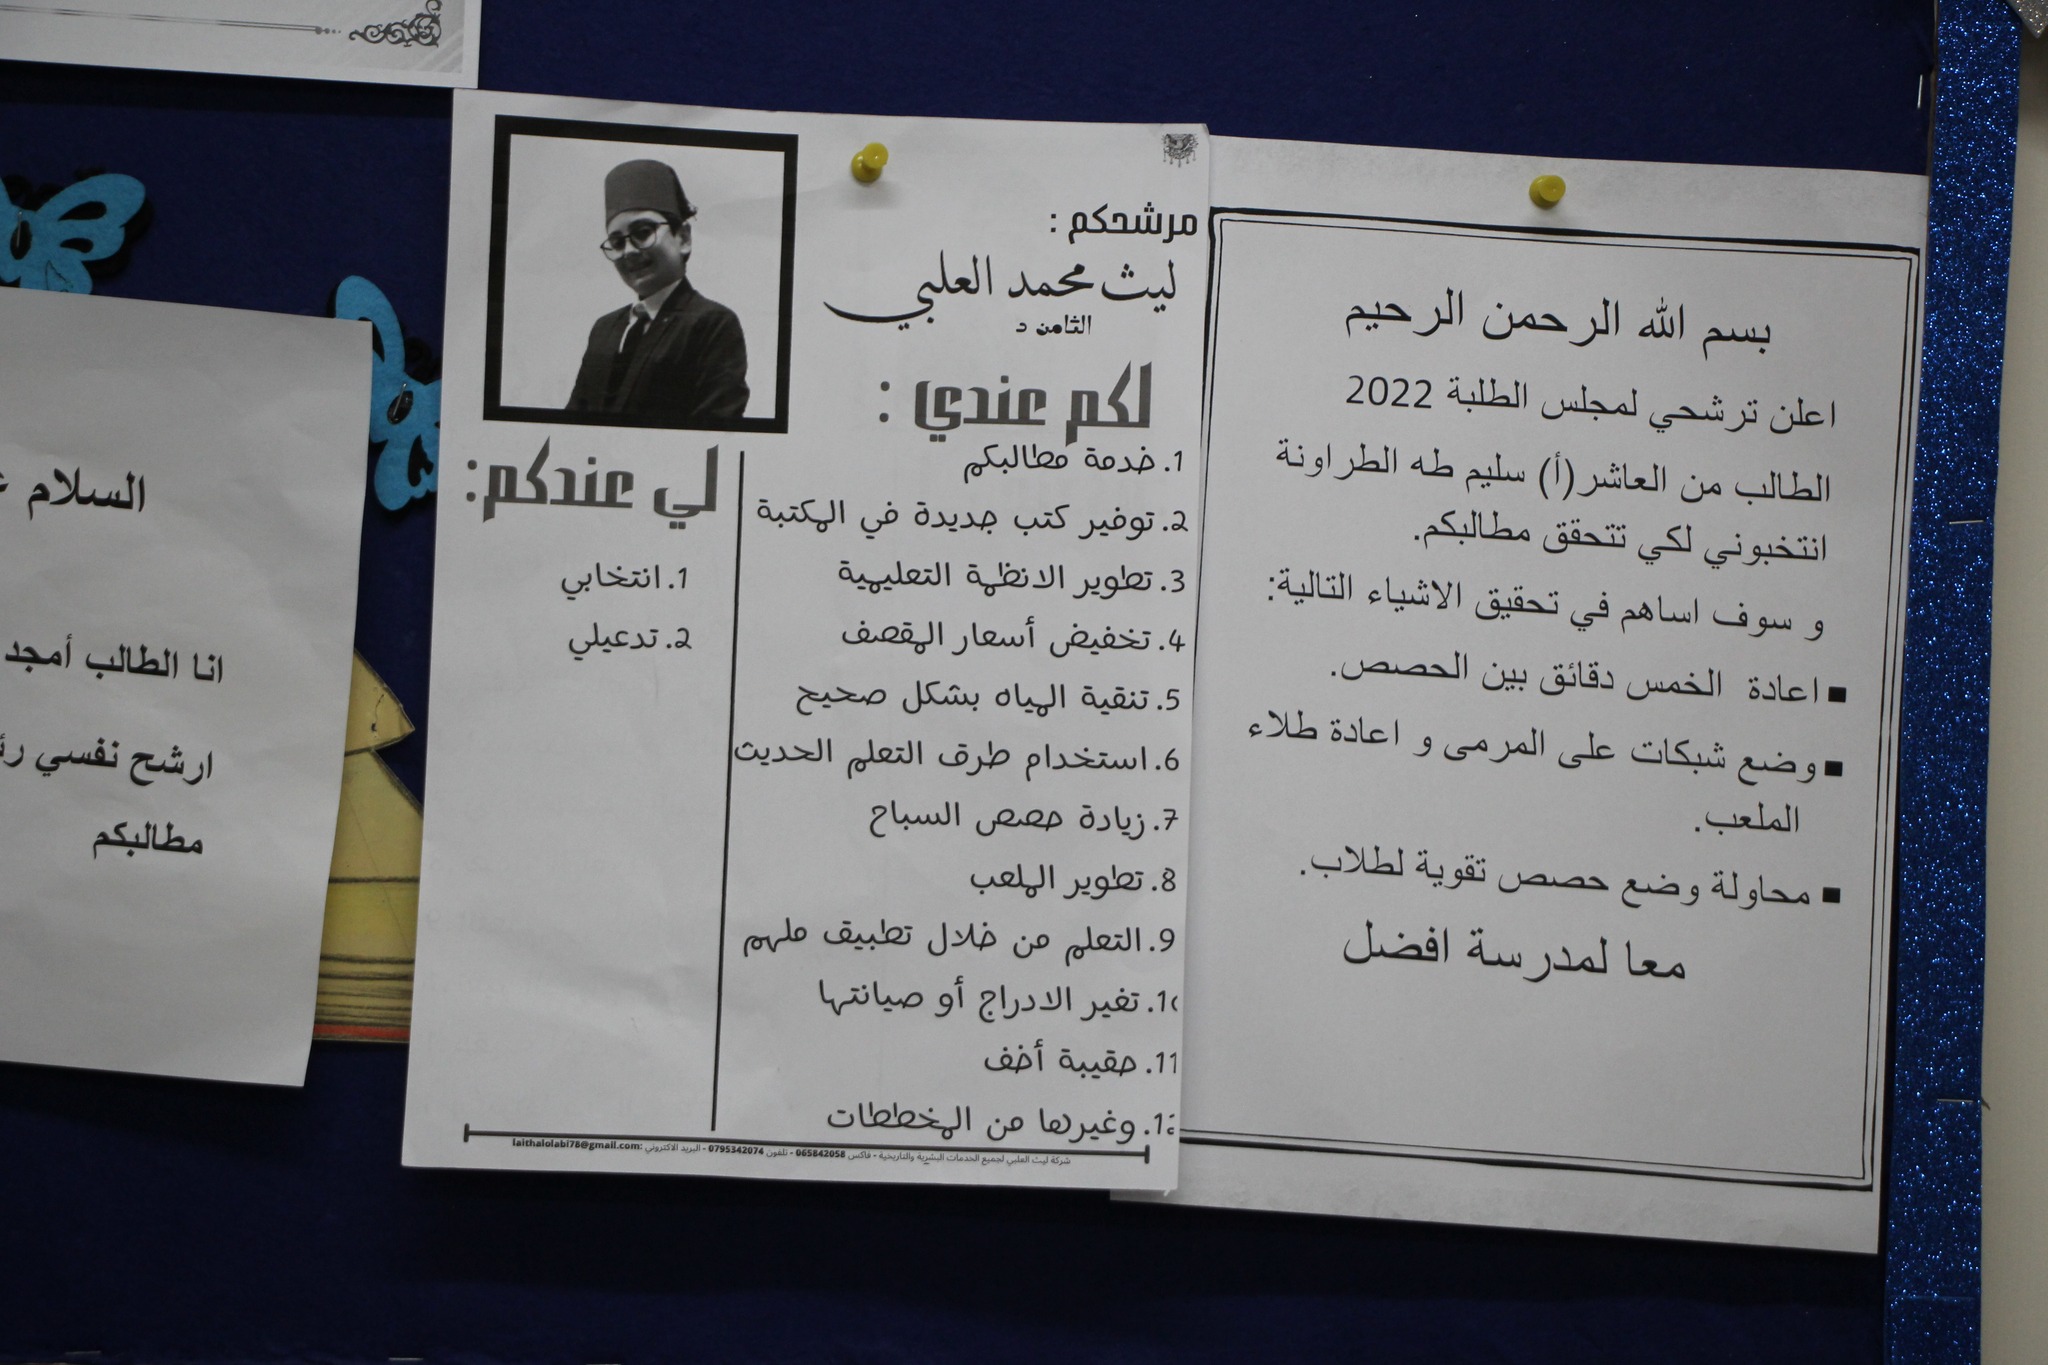 مرشحكم :
ليث محمد العلبي
الثامن د
لكم عندي :
1. خدمة مطالبكم
2. توفير كتب جديدة في المكتبة
3. تطوير الانظمة التعليمية
4. تخفيض أسعار المقصف
5. تنقية المياه بشكل صحيح
6. استخدام طرق التعلم الحديث
7. زيادة حصص السباح
8. تطوير الملعب
9. التعلم من خلال تطبيق ملهم
10. تغير الادراج أو صيانتها
11. حقيبة أخف
12. وغيرها من المخططات
لي عندكم:
1. انتخابي
2. تدعيلي
شركة ليث العلبي لجميع الخدمات البشرية والتاريخية - فاكس 065842058 - تلفون 0795342074 - البريد الاكتروني :laithalolabi78@gmail.com
بسم الله الرحمن الرحيم
اعلن ترشحي لمجلس الطلبة 2022
الطالب من العاشر(أ) سليم طه الطراونة
انتخبوني لكي تتحقق مطالبكم.
و سوف اساهم في تحقيق الاشياء التالية:
▪ اعادة الخمس دقائق بين الحصص.
▪ وضع شبكات على المرمى و اعادة طلاء
الملعب.
▪ محاولة وضع حصص تقوية لطلاب.
معا لمدرسة افضل
السلام
انا الطالب أمجد
ارشح نفسي
مطالبكم